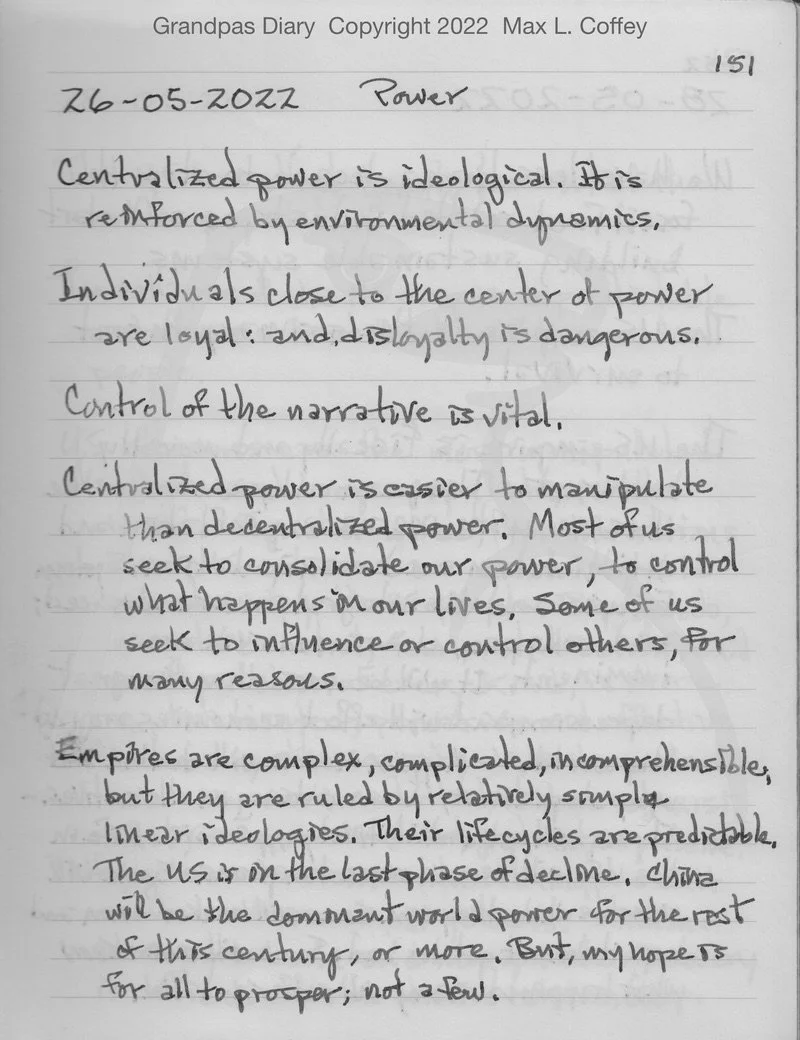 Grandpas Diary Copyright 2022 Max L. Coffey
151
26-05-2022 Power
Centralized power is ideological. It is
reinforced by environmental dynamics.
Individuals close to the center of power
are loyal: and, disloyalty is dangerous.
Control of the narrative is vital.
Centralized power is easier to manipulate
than decentralized power. Most of us
seek to consolidate our power, to control
what happens in our lives. Some of us
seek to influence or control others, for
many reasons.
Empires are complex, complicated, incomprehensible,
but they are ruled by relatively simple
linear ideologies. Their lifecycles are predictable.
The US is in the last phase of decline. China
will be the dominant world power for the rest
of this century, or more. But, my hope is
for all to prosper; not a few.